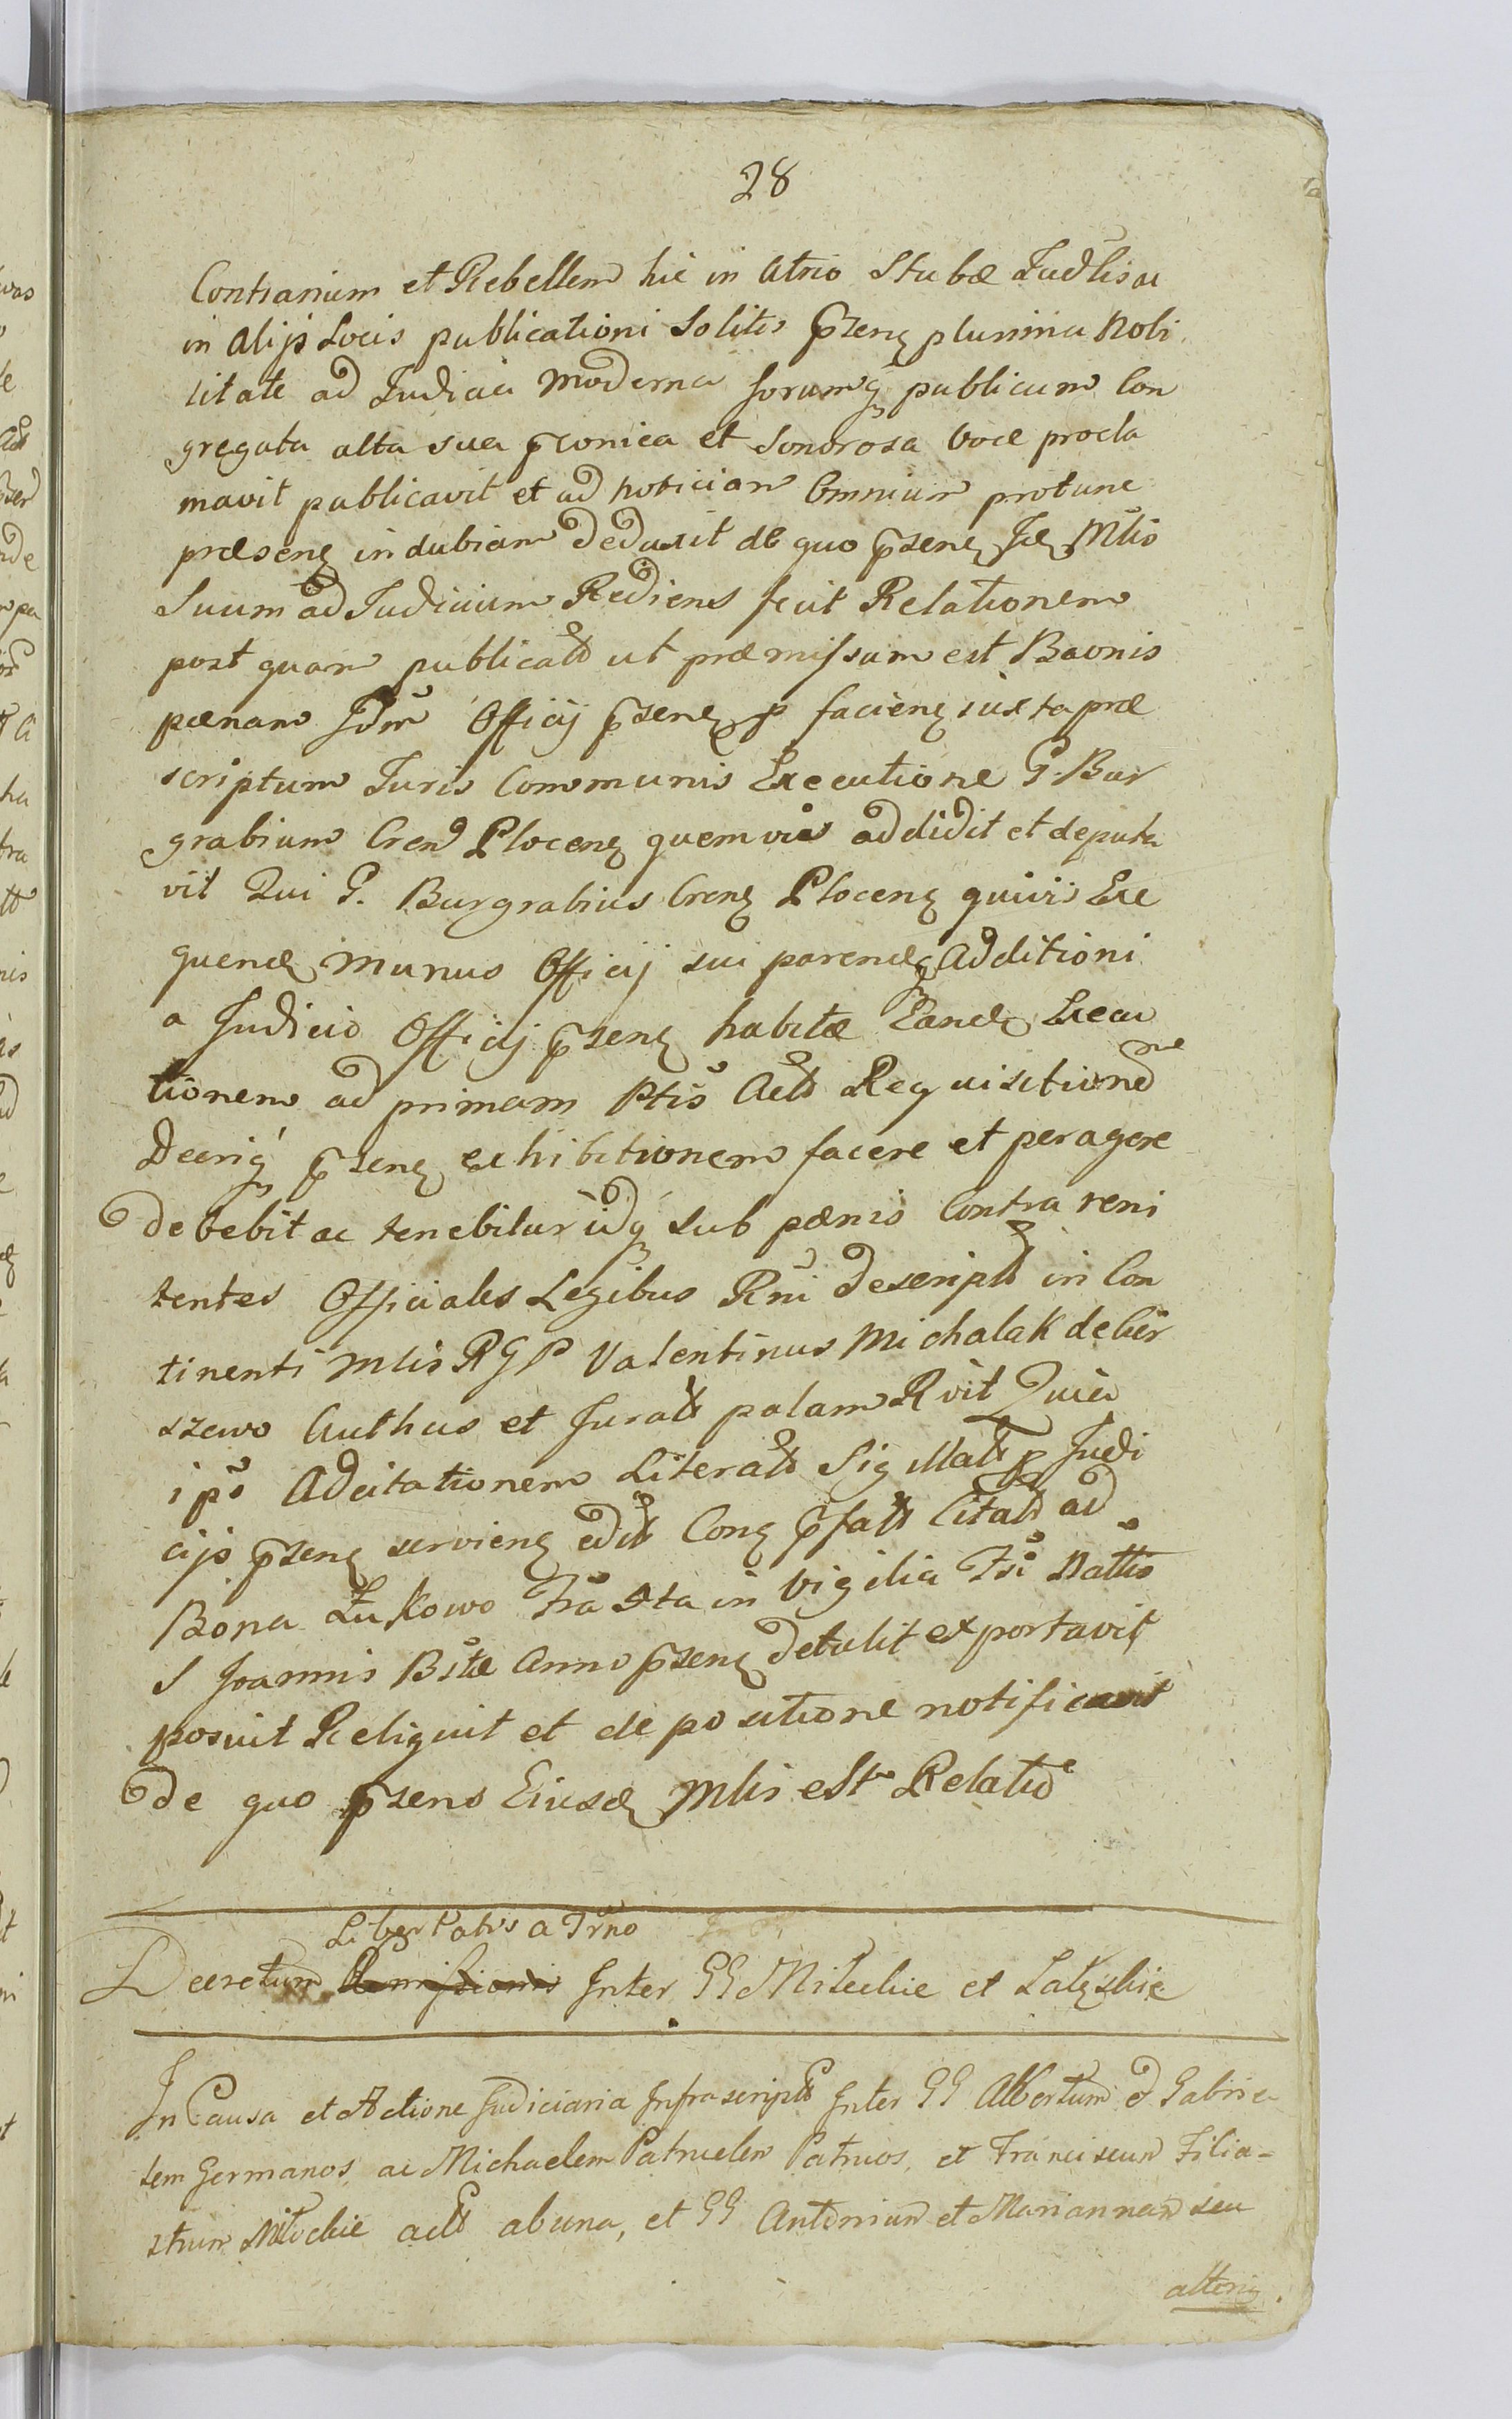 28
Contrarium et Rebellem hic in Atrio Stubæ Judlis ac
in Alijs Locis publicationi Solitis p̄senẹ plurima Nobi
litate ad Judicia moderna forumqȝ publicum Con
gregata alta sua p̄conica et Sonorosa voce procla
mavit publicavit et ad noticiam Omnium protunc
præsenẹ indubiam deduxit de quo p̄senẹ Mlis
Suum ad Judicium Rediens fecit Relationem
post quam publicatt ut præmissum est Baonis
pænam Officij p̄senẹ p facienẹ iuxta præ
scriptum Juris Communis Executione G. Bur
grabium Cren Plocenẹ quemvis addidit et deputa
vit Qui G. Burgrabius Crenẹ Plocenẹ quivis Exe
quendẹ munus Officij sui parendẹqȝ Additioni
a Judicio Officij p̄senẹ habitæ Eandẹ Execu
tionem ad primam Ptis Actt Requisitionem
Decriqȝ p̄senẹ exhibitionem facere et peragere
debebit ac tenebitur idqȝ sub pænis Contra reni
tentes Officiales Legibus Rni descriptt in Con
tinenti Mlis RGP Valentinus Michalak de Cier
szewo Authus et Juratt palam Rvit Quia
ips Adcitationem Literatt Sigillatt p Judi
cijs p̄senẹ servienẹ editt Conẹ p̄fatt Citatt ad
Bona Żukowo Fra 5ta in Vigilia Fsi Nattis
S Joannis Bstæ Anno p̄senẹ detulit exportavit
posuit Reliquit et de positione notificavit
de quo p̄sens Eiusdẹ Mlis est Relatio
Libertatis a Trno
Decretum Remissionis Inter GG Miteckie et Latẹskie
In Causa et Actione Judiciaria Infrascriptt Inter GG Albertum & Gabrie
lem Germanos, ac Michaelem Patruelem Patruos, et Franciscum Filia-
strum Miteckie actt ab una, et GG Antonium et Mariannam seu
alteriẹ